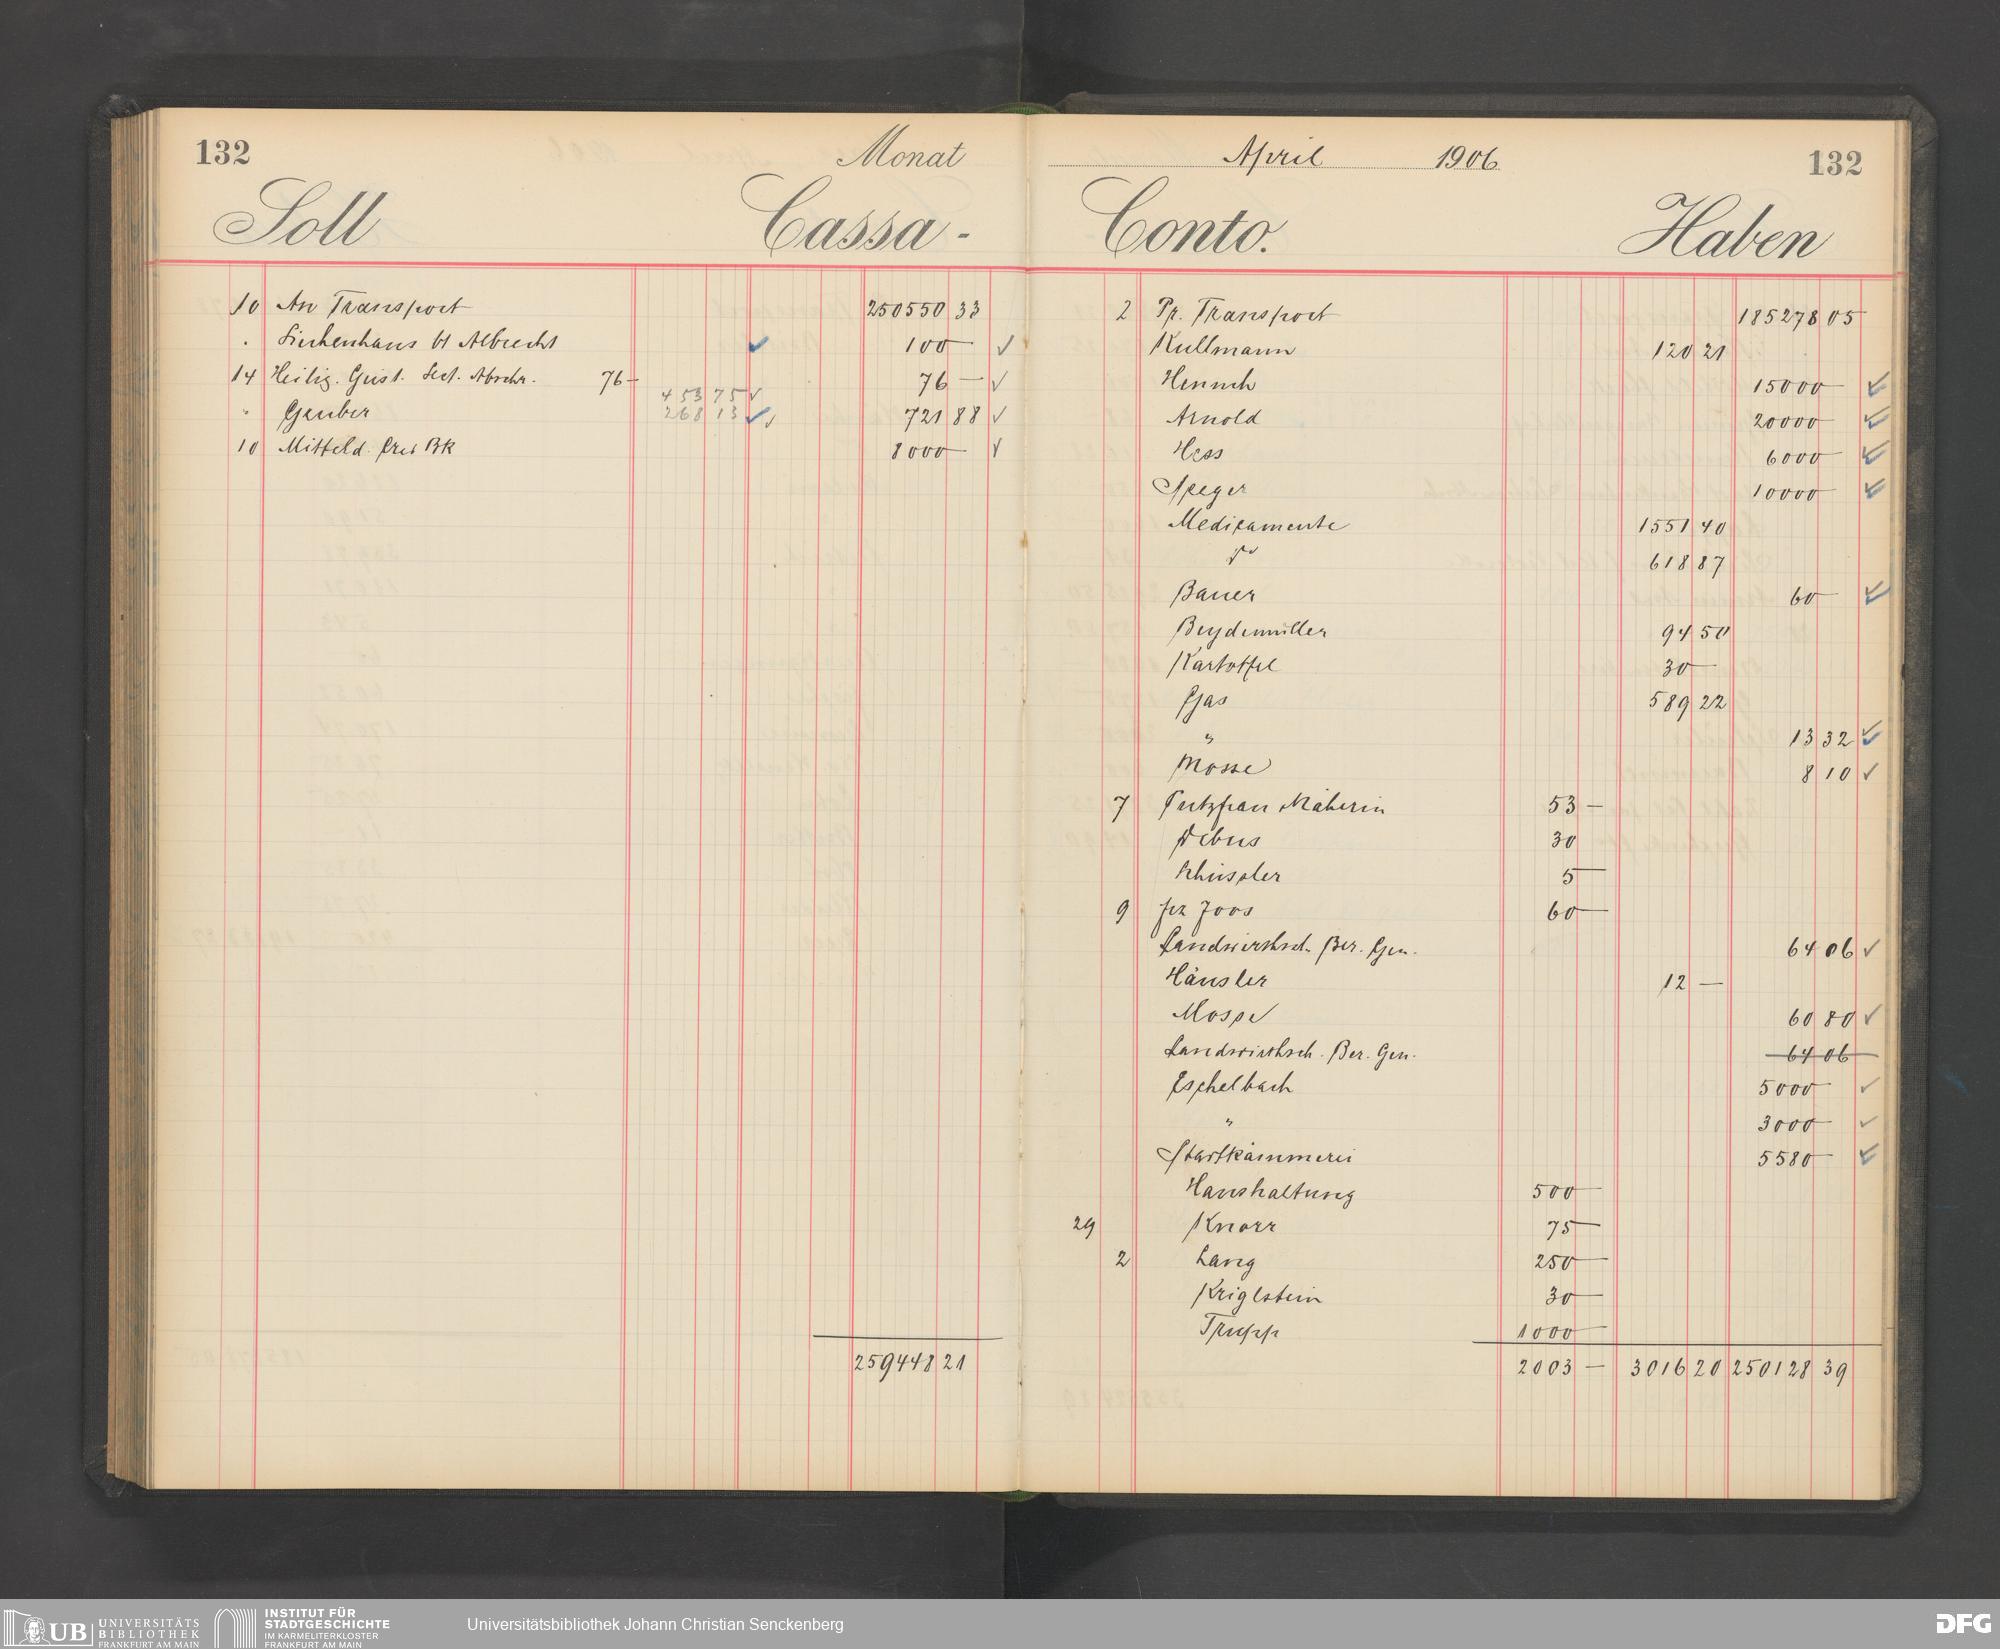 132 Monat
Soll Cassa-
10 An Transport 250550 33
" Siechenhaus bl Albrecht 100 —
14 Heilig. Geist. Sect. Abschr. 76 — 76 —
453 75
" Gauber 268 13 721 88
10 Mitteld. Cred BK 8000 —
259448 21
April 1906 132
Conto. Haben
2 Pr. Transport 185278 05
Kullmann 120 21
Henrich 15000 —
Arnold 20000 —
Hess 6000 —
Speyer 10000 —
Medicamente 1551 40
do 618 87
Bauer 60 —
Beydemüller 94 50
Kartoffel 30 —
Gas 589 22
" 13 32
Mosse 8 10
7 Putzfrau Näherin 53 —
Debus 30
5 —
9 Joos 60 —
Landwirthsch. Ber. Gen. 64 06
Häusler 12 —
Mosse 60 80
Landwirthsch. Ber. Gen. 64 06
Eschelbach 5000 —
" 3000 —
Stadtkämmerei 5580 —
Haushaltung 500 —
29 Knorr 75 —
2 Lang 250 —
Kriglstein 30 —
Trupp 1000 —
2003 — 3016 20 250128 39
UB UNIVERSITÄTS
BIBLIOTHEK
FRANKFURT AM MAIN
INSTITUT FÜR
STADTGESCHICHTE
IM KARMELITERKLOSTER
FRANKFURT AM MAIN
Universitätsbibliothek Johann Christian Senckenberg
DFG